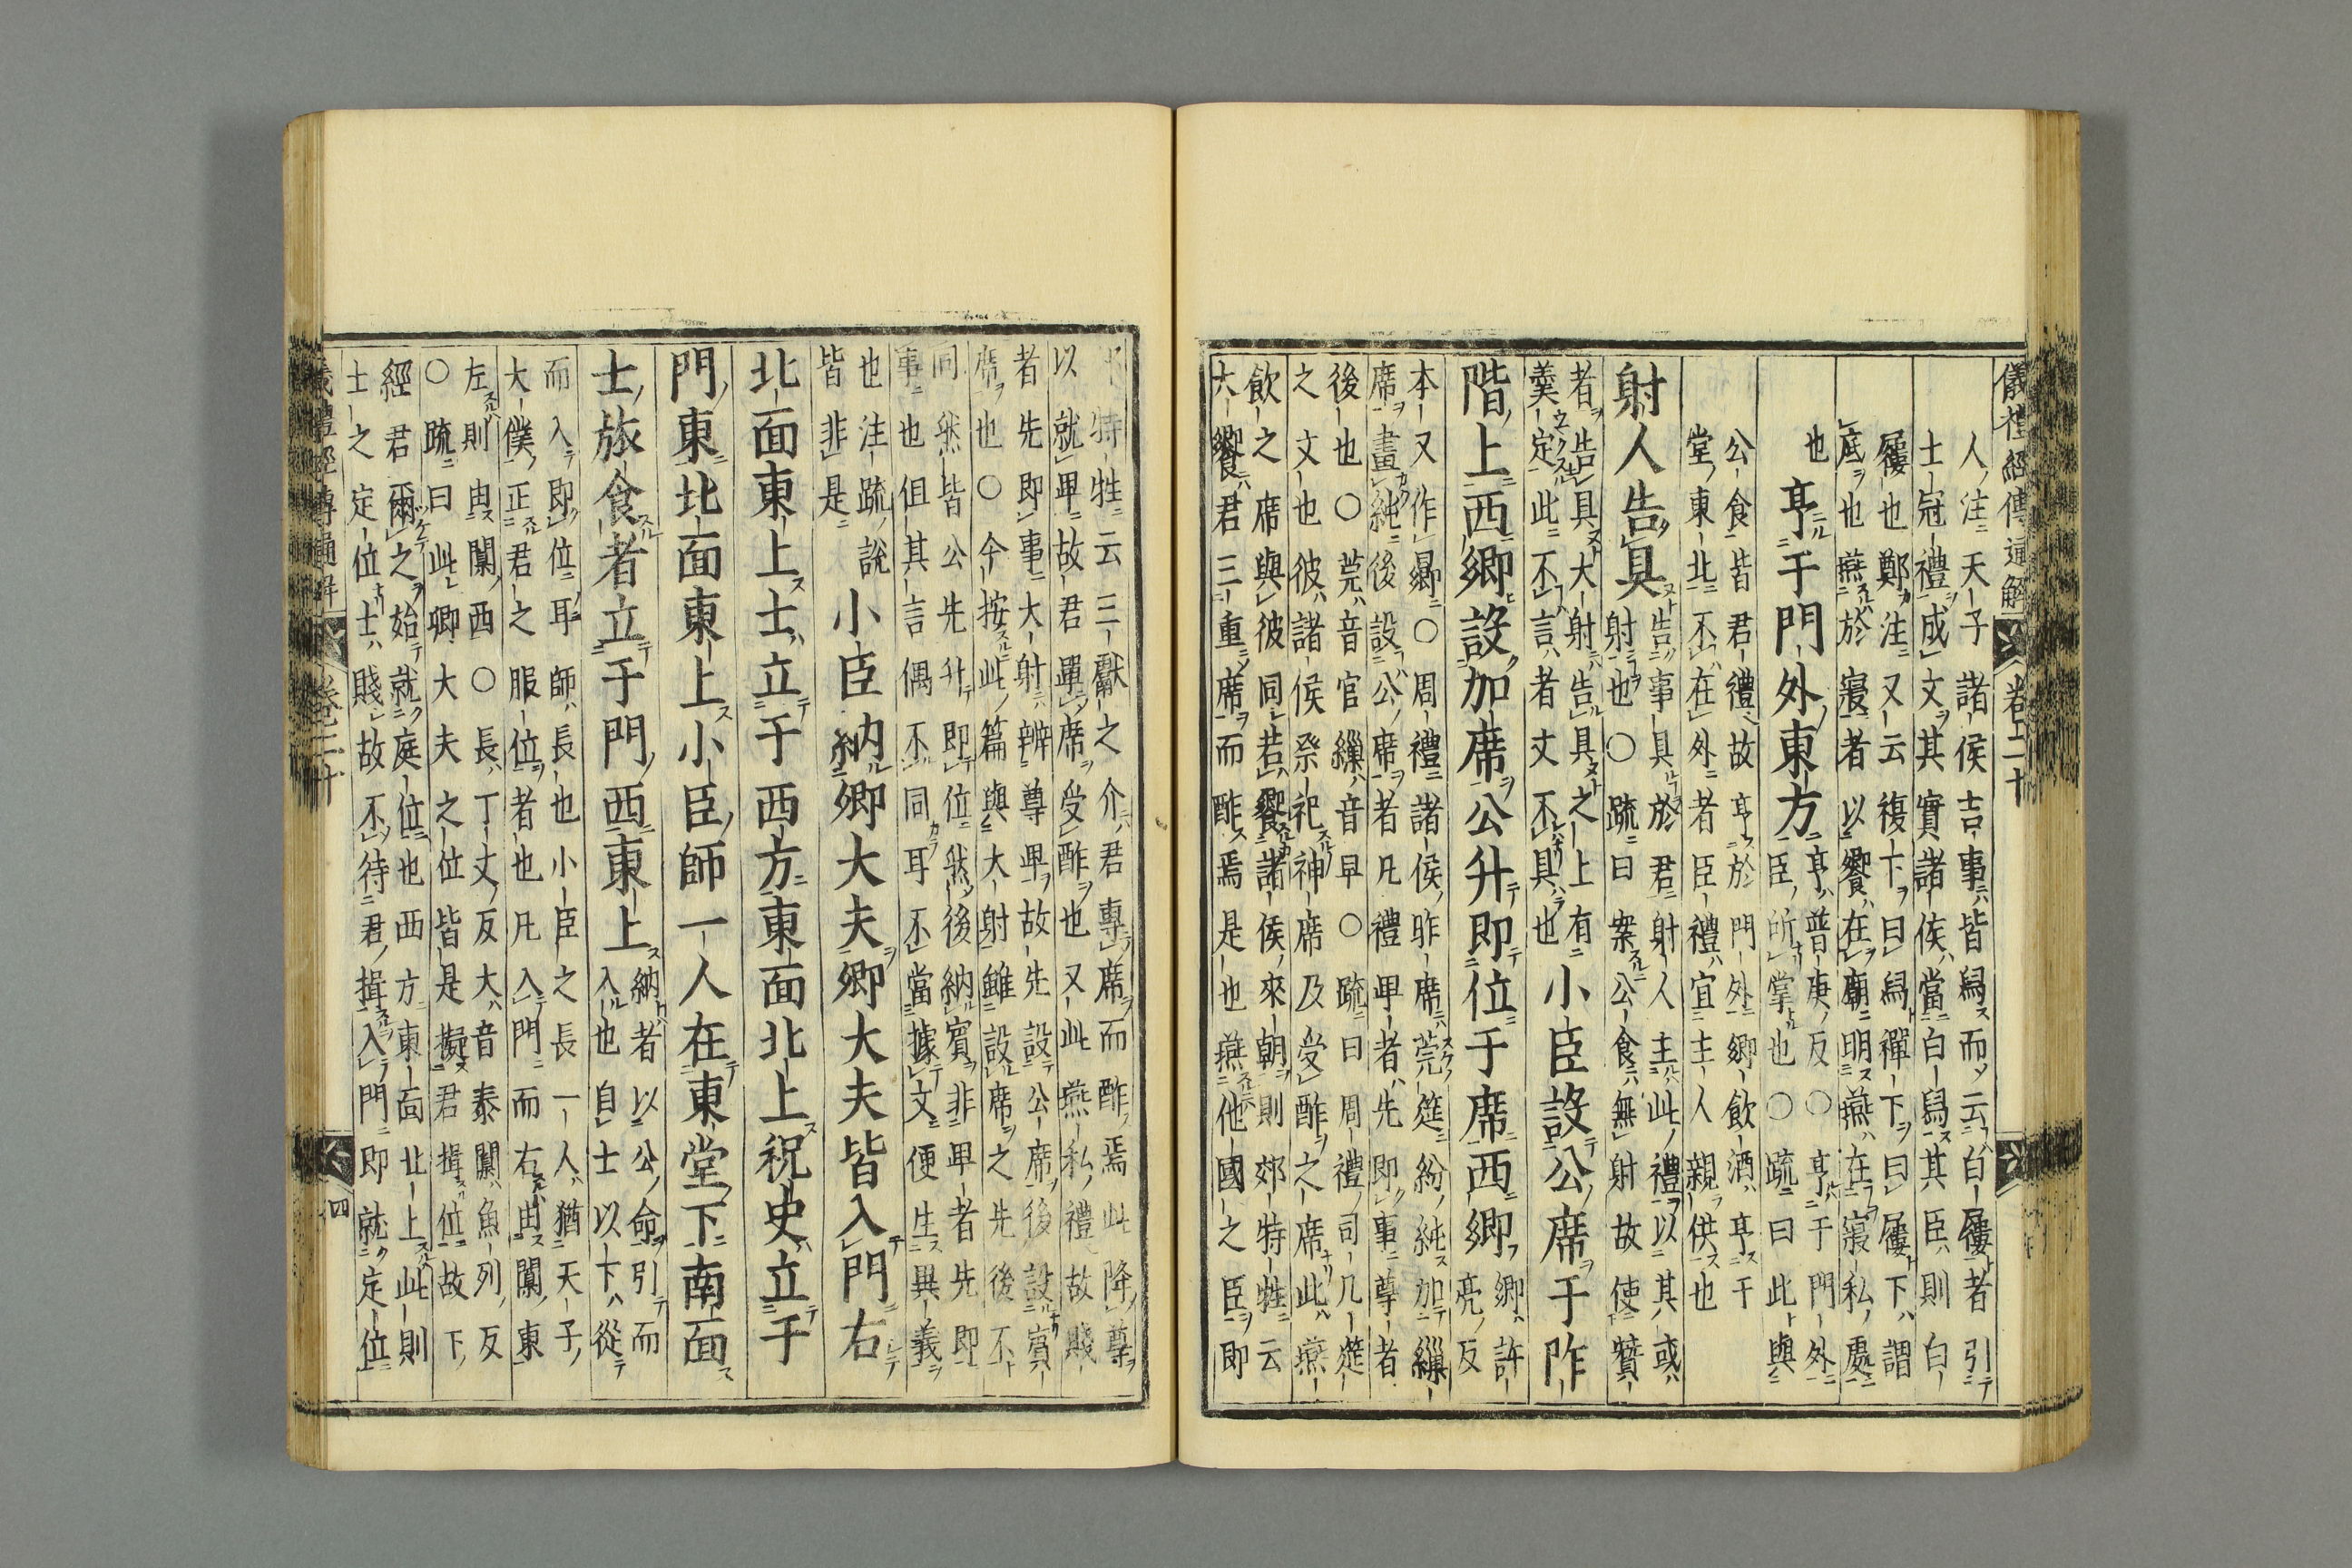 儀禮經傳通解 卷二十
人注天子諸侯吉事皆舄而云白屨者引
士冠禮成文其實諸侯當白舄其臣則白
屨也鄭注又云複下曰舄禪下曰屨下謂
底也燕於寢者以饗在廟明燕在寢私處
也 亨于門外東方 亨普庚反○亨于門外
臣所掌也○疏曰此與
公食皆君禮故亨於門外鄉飲酒亨于
堂東北不在外者臣禮宜主人親供也
射人告具 告事具於君射人主此禮以其或
射也○疏曰案公食無射故使贊
者告具大射告具之上有
羹定此不言者文不具也 小臣設公席于阼
階上西鄉設加席公升即位于席西鄉 鄉許
亮反
本又作曏○周禮諸侯昨席莞筵紛純加繅
席畫純後設公席者凡禮卑者先即事尊者
後也○莞音官繅音早○疏曰周禮司几筵
之文也彼諸侯祭祀神席及受酢之席此燕
飲之席與彼同若饗諸侯來朝則郊特牲云
大饗君三重席而酢焉是也燕他國之臣即
特牲云三獻之介君專席而酢焉此降尊
以就卑故君單席受酢也又此燕私禮故賤
者先即事大射辨尊卑故先設公席後設賓
席也○今按此篇與大射雖設席之先後不
同然皆公先升即位然後納賓非卑者先即
事也但其言偶不同耳不當據文便生異義
也注疏說
皆非是 小臣納卿大夫卿大夫皆入門右
北面東上士立于西方東面北上祝史立于
門東北面東上小臣師一人在東堂下南面
士旅食者立于門西東上 納者以公命引而
入也自士以下從
而入即位耳師長也小臣之長一人猶天子
大僕正君之服位者也凡入門而右由闑東
左則由闑西○長丁丈反大音泰闑魚列反
○疏曰此卿大夫之位皆是擬君揖位故下
經君爾之始就庭位也西方東面北上此則
士之定位士賤故不待君揖入門即就定位
儀禮經傳通解 卷二十 四